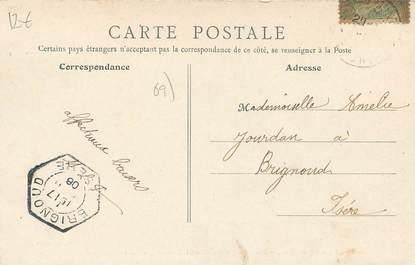 12€
CARTE POSTALE
Certains pays étrangers n'acceptant pas la correspondance de ce côté, se renseigner à la Poste
Correspondance
Adresse
69)
affectueux baisers
Mademoiselle Amélie
Jourdan à
Brignoud
Isère
BRIGNOUD
ISÈRE
17
08